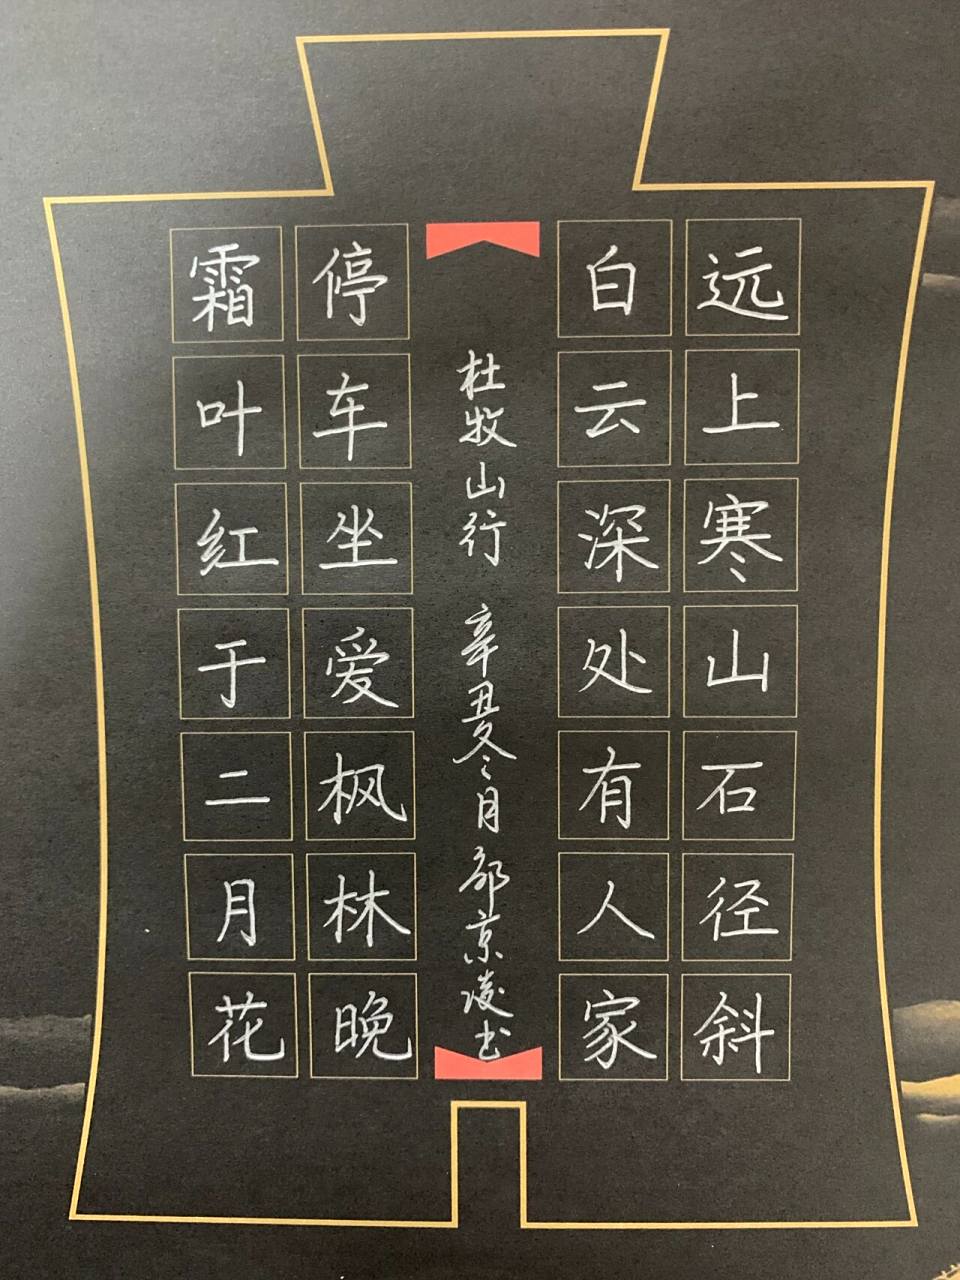 远上寒山石径斜
白云深处有人家
杜牧山行 辛丑冬月 邹京凌书
停车坐爱枫林晚
霜叶红于二月花